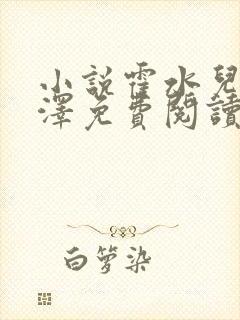 小說霍水兒
澤免費閱讀
白夢染